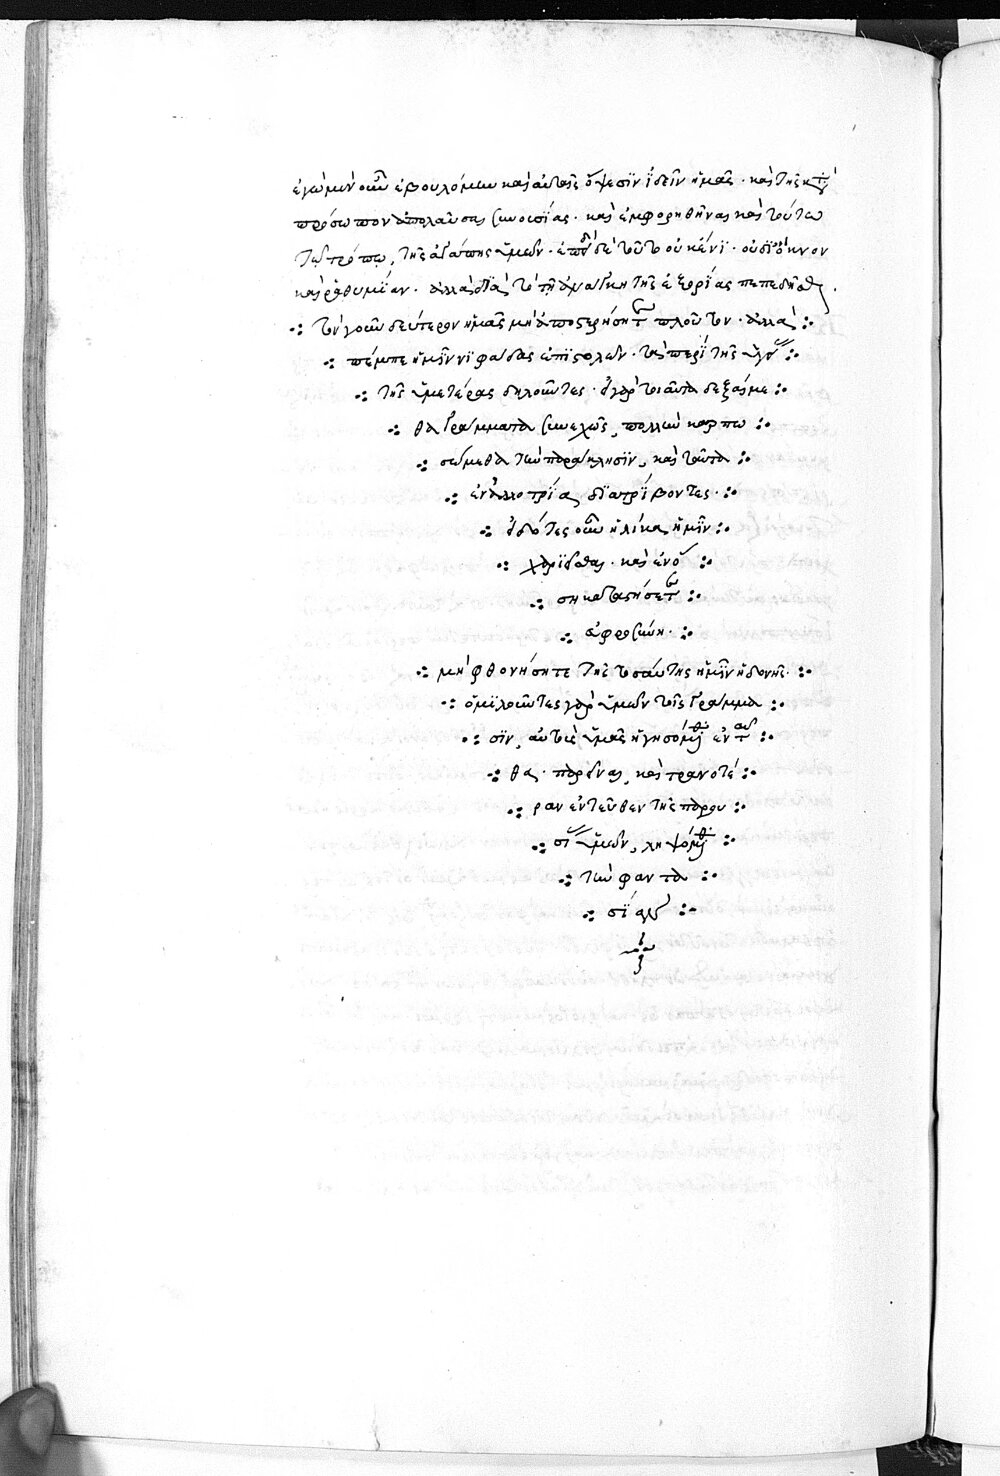 ἐγὼ μὲν οὖν ἐβουλόμην καὶ αὐταῖς ὄψεσϊν ϊδεῖν ἡμᾶς · καὶ τῆς κατὰ
πρόσωπον ἀπολαῦσαι συνουσίας · καὶ ἐμφορηθῆναι καὶ τούτω
τῷ τρόπῳ, τῆς ἀγάπης ὑμῶν · ἐπεὶ δὲ τοῦτο οὐκ ἔνϊ · οὐ δι' ὄκνον
καὶ ῥαθυμΐαν · ἀλλὰ διὰ τὸ τῇ ἀνάγκη τῆς ἐξορΐας πεπεδῆσθαι,
τὸν γοῦν δεύτερον ἡμᾶς μὴ ἀποστερήσητε πλοῦτον · ἀλλὰ
πέμπε ἡμῖν νϊφάδας ἐπϊστολῶν · τὰ περὶ τῆς ὑγείας
τῆς ὑμετέρας δηλοῦντες · εἰ γὰρ τοιαῦτα δεξαίμε
θα γράμματα συνεχῶς, πολλὴν καρπω
σώμεθα τὴν παράκλησϊν, καὶ ταῦτα
ἐν ἀλλοτρίᾳ διατρίβοντες ·
εἰδότες οὖν ἡλίκα ἡμῖν
χαρϊεῖσθαι · καὶ ἐν ὅ
ση καταστήσετε
εὐφροσύνη ·
μὴ φθονήσητε τῆς τοσαύτης ἡμῖν ἡδονῆς ·
ὁμϊλοῦντες γὰρ ὑμῶν τοῖς γράμμα
σϊν, αὐτοὺς ὑμᾶς ἡγησόμεθα ἐνταῦ
θα · παρεῖναι, καὶ τρανοτέ
ραν ἐντεῦθεν τῆς παρου
σίας ὑμῶν, ληψόμεθα
τὴν φαντα
σΐαν